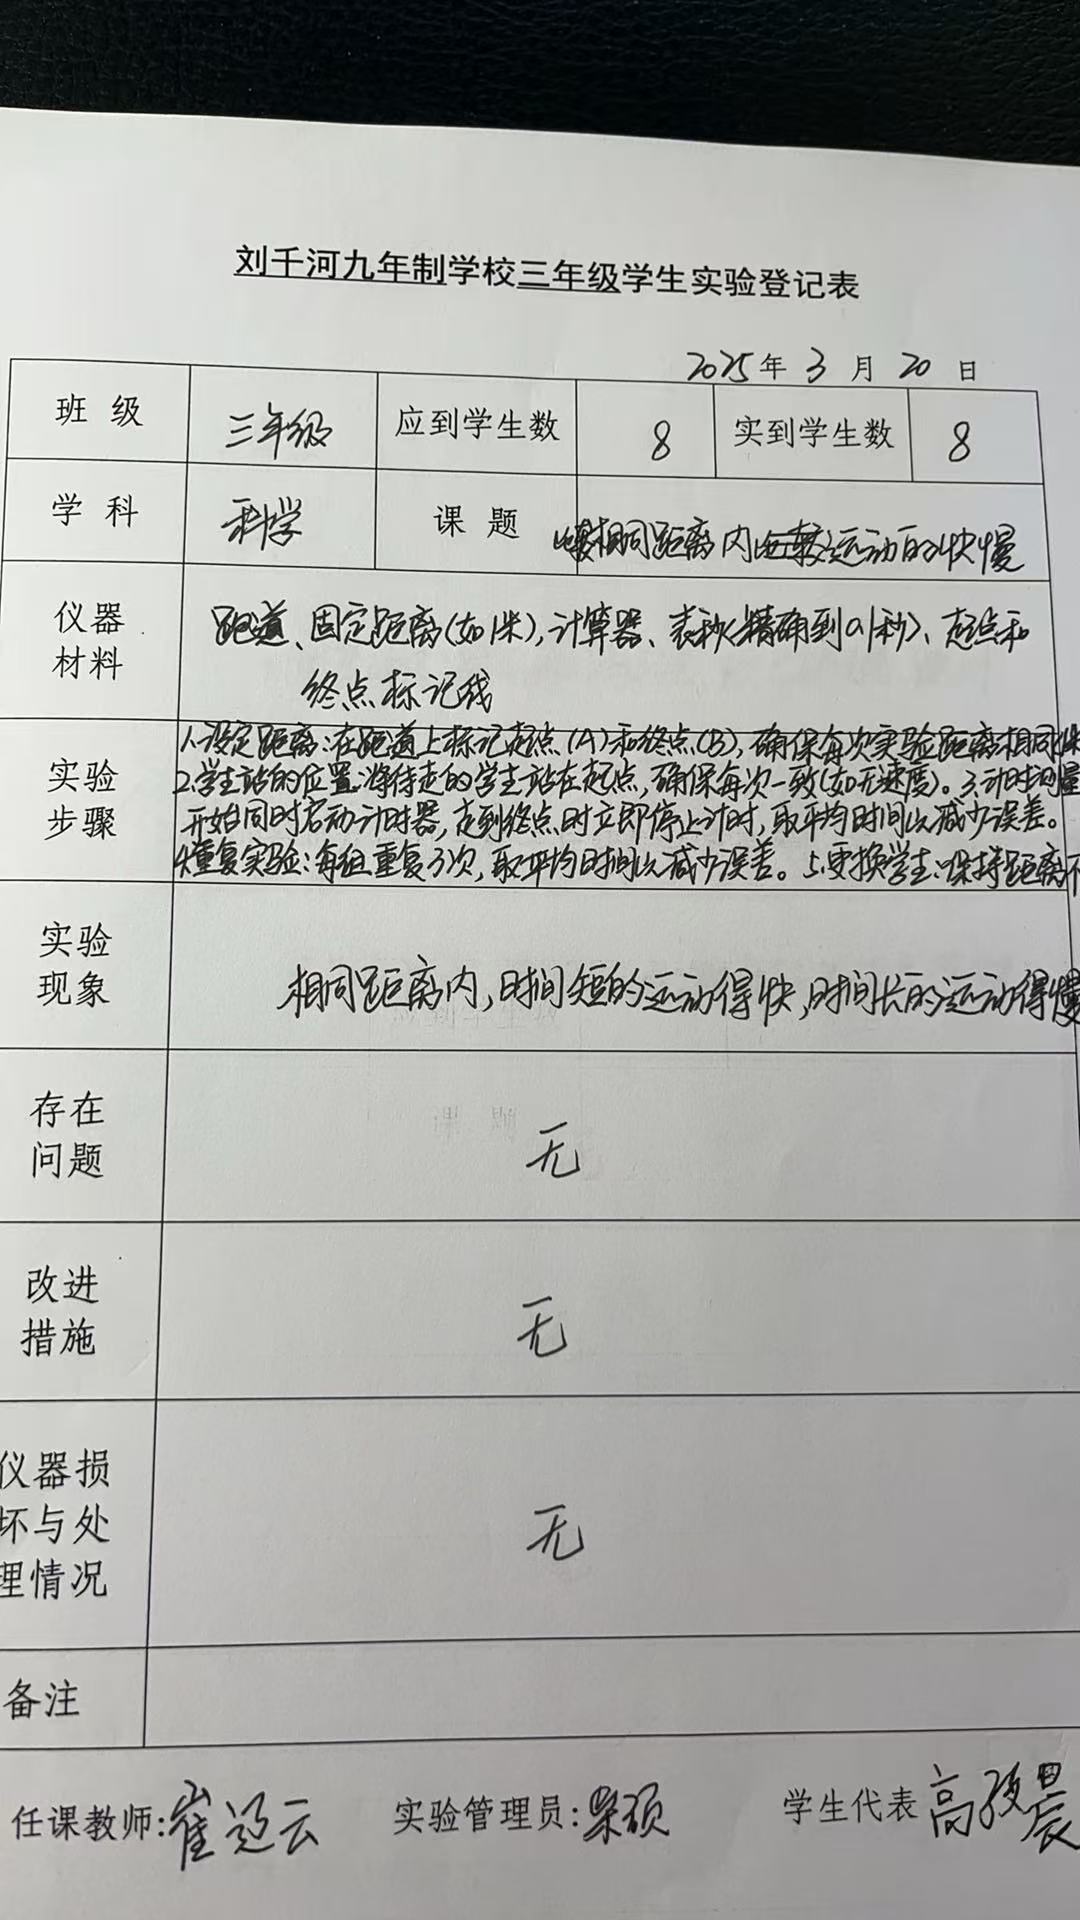 刘千河九年制学校三年级学生实验登记表
2025年 3 月 20 日
班 级 三年级 应到学生数 8 实到学生数 8
学 科 科学 课 题 相同距离内比较运动的快慢
仪器
材料
跑道、固定距离(如1米),计算器、表秒(精确到0.1秒)、起点和
终点标记线
实验
步骤
1.设定距离:在跑道上标记起点(A)和终点(B),确保每次实验距离相同
2.学生站的位置:将待走的学生站在起点,确保每次一致(如无速度)。3.计时测量
开始同时启动计时器,走到终点时立即停止计时,取平均时间以减少误差。
4.重复实验:每组重复3次,取平均时间以减少误差。5.更换学生:保持距离不
实验
现象
相同距离内,时间短的运动得快,时间长的运动得慢
存在
问题
无
改进
措施
无
仪器损
坏与处
理情况
无
备注
任课教师:崔 云 实验管理员: 硕 学生代表 高 晨